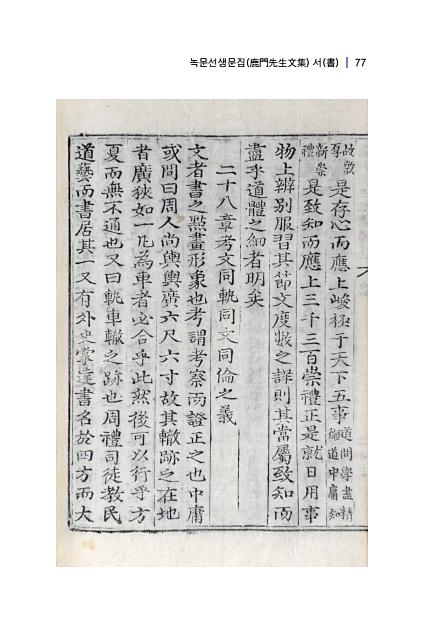 녹문선생문집(鹿門先生文集) 서(書) | 77
故敦厚是存心而應上峻極于天下五事道問學盡精微道中庸知
新崇禮是致知而應上三千三百崇禮正是就日用事
物上辨別服習其節文度數之詳則其當屬致知而
盡乎道體之細者明矣
二十八章考文同軌同文同倫之義
文者書之點畫形象也考謂考察而證正之也中庸
或問曰周人尚輿輿廣六尺六寸故其轍跡之在地
者廣狹如一凡為車者必合乎此然後可以行乎方
夏而無不通也又曰軌車轍之跡也周禮司徒教民
道藝而書居其一又有外史掌達書名於四方而大